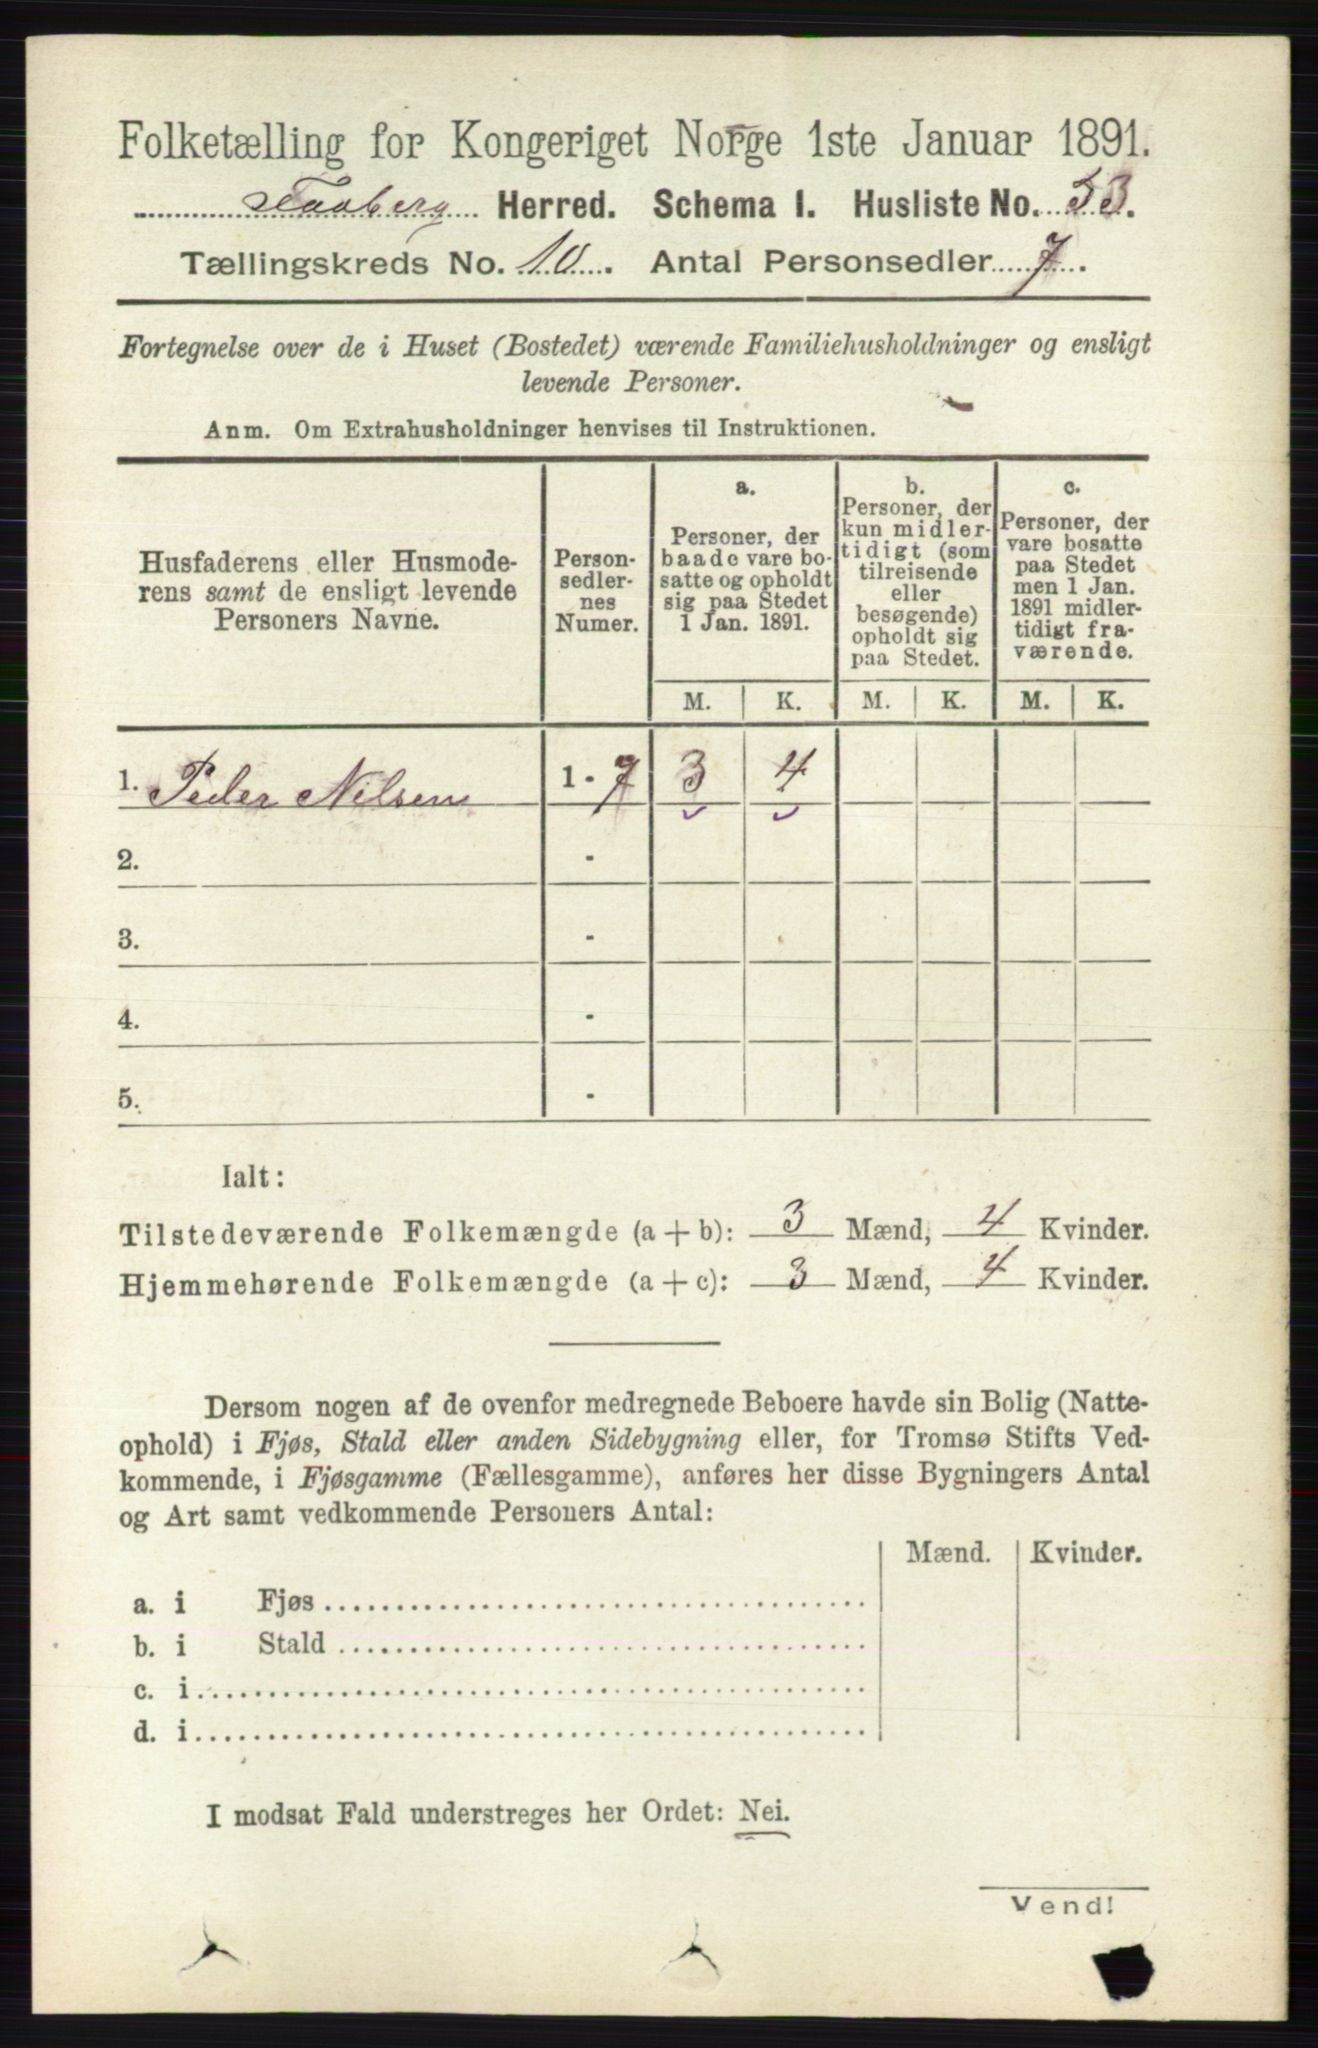 Folketælling for Kongeriget Norge 1ste Januar 1891.
Faaberg Herred. Schema I. Husliste No. 53.
Tællingskreds No. 10. Antal Personsedler 7.
Fortegnelse over de i Huset (Bostedet) værende Familiehusholdninger og ensligt
levende Personer.
Anm. Om Extrahusholdninger henvises til Instruktionen.
Husfaderens eller Husmode-
rens samt de ensligt levende
Personers Navne.
Person-
sedler-
nes
Numer.
a.
Personer, der
baade vare bo-
satte og opholdt
sig paa Stedet
1 Jan. 1891.
b.
Personer, der
kun midler-
tidigt (som
tilreisende
eller
besøgende)
opholdt sig
paa Stedet.
c.
Personer, der
vare bosatte
paa Stedet
men 1 Jan.
1891 midler-
tidigt fra-
værende.
M. K. M. K. M. K.
1. Peder Nilsen 1 - 7 3 4
2. -
3. -
4. -
5. -
Ialt:
Tilstedeværende Folkemængde (a + b): 3 Mænd, 4 Kvinder.
Hjemmehørende Folkemængde (a + c): 3 Mænd, 4 Kvinder.
Dersom nogen af de ovenfor medregnede Beboere havde sin Bolig (Natte-
ophold) i Fjøs, Stald eller anden Sidebygning eller, for Tromsø Stifts Ved-
kommende, i Fjøsgamme (Fællesgamme), anføres her disse Bygningers Antal
og Art samt vedkommende Personers Antal:
Mænd. Kvinder.
a. i Fjøs
b. i Stald
c. i
d. i
I modsat Fald understreges her Ordet: Nei.
Vend!